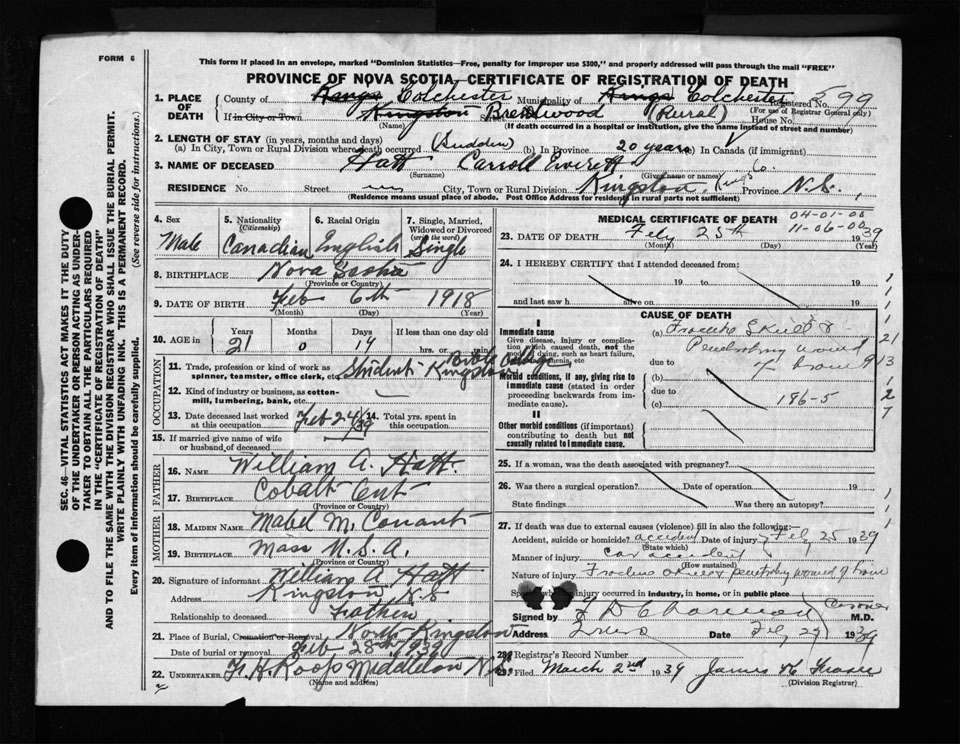 FORM 6
This form if placed in an envelope, marked "Dominion Statistics—Free, penalty for improper use $300," and properly addressed will pass through the mail "FREE"
PROVINCE OF NOVA SCOTIA, CERTIFICATE OF REGISTRATION OF DEATH
SEC. 46—VITAL STATISTICS ACT MAKES IT THE DUTY
OF THE UNDERTAKER OR PERSON ACTING AS UNDER-
TAKER TO OBTAIN ALL THE PARTICULARS REQUIRED
IN THE "CERTIFICATE OF REGISTRATION OF DEATH"
AND TO FILE THE SAME WITH THE DIVISION REGISTRAR WHO SHALL ISSUE THE BURIAL PERMIT.
WRITE PLAINLY WITH UNFADING INK. THIS IS A PERMANENT RECORD.
Every item of information should be carefully supplied. (See reverse side for instructions.)
1. PLACE OF DEATH County of Kings Colchester Municipality of Kings Colchester Registered No. 599
(For use of Registrar General only)
If in City or Town Kingston Street Brentwood (Rural) House No.
(Name) (If death occurred in a hospital or institution, give the name instead of street and number)
2. LENGTH OF STAY (in years, months and days)
(a) In City, Town or Rural Division where death occurred (Sudden) (b) In Province 20 years (c) In Canada (if immigrant)
3. NAME OF DECEASED Hatt Carroll Everett
(Surname) (Given name or names)
RESIDENCE No. Street City, Town or Rural Division Kingston, Kings Co. Province N.S.
(Residence means usual place of abode. Post Office Address for residents in rural parts not sufficient)
4. Sex Male
5. Nationality (Citizenship) Canadian
6. Racial Origin English
7. Single, Married, Widowed or Divorced (write the word) Single
8. BIRTHPLACE Nova Scotia
(Province or Country)
9. DATE OF BIRTH Feb 6th 1918
(Month) (Day) (Year)
10. AGE in Years 21 Months 0 Days 14 If less than one day old hrs. or min.
OCCUPATION
11. Trade, profession or kind of work as spinner, teamster, office clerk, etc. Student - Bible College Kingston
12. Kind of industry or business, as cotton-mill, lumbering, bank, etc.
13. Date deceased last worked at this occupation Feb 24/39
14. Total yrs. spent in this occupation
15. If married give name of wife or husband of deceased
FATHER
16. NAME William A. Hatt
17. BIRTHPLACE Cobalt Ont
(Province or Country)
MOTHER
18. MAIDEN NAME Mabel M. Conant
19. BIRTHPLACE Mass U.S.A.
(Province or Country)
20. Signature of informant William A. Hatt
Address Kingston N.S
Relationship to deceased Father
21. Place of Burial, Cremation or Removal Nova Kingston
Date of burial or removal Feb 28th, 1939
22. UNDERTAKER F.H. Roop Middleton N.S.
(Name and address)
MEDICAL CERTIFICATE OF DEATH
04-01-00
11-06-00
23. DATE OF DEATH Feb 25th 1939
(Month) (Day) (Year)
24. I HEREBY CERTIFY that I attended deceased from:
19 to 19
and last saw h alive on 19
CAUSE OF DEATH
I
Immediate cause
Give disease, injury or complication which caused death, not the mode of dying, such as heart failure, asphyxia, asthenia, etc
(a) Fracture Skull &
Penetrating wound
due to of brain
Morbid conditions, if any, giving rise to immediate cause (stated in order proceeding backwards from immediate cause).
(b)
due to
(c) 186-5
II
Other morbid conditions (if important) contributing to death but not causally related to immediate cause.
25. If a woman, was the death associated with pregnancy?
26. Was there a surgical operation? Date of operation 19
State findings Was there an autopsy?
27. If death was due to external causes (violence) fill in also the following:—
Accident, suicide or homicide? accident Date of injury Feb 25 1939
(State which)
Manner of injury car accident
(How sustained)
Nature of injury Fracture skull penetrating wound of brain
injury occurred in industry, in home, or in public place
Signed by Coroner M.D.
Address Truro Date Feb 27 1939
28. Registrar's Record Number
29. Filed March 2nd 1939 James H
(Division Registrar)